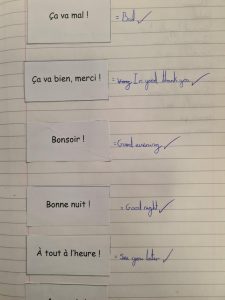 Ça va mal !
= Bad
Ça va bien, merci !
= I'm good thank you
Bonsoir !
= Good evening
Bonne nuit !
= Good night
À tout à l'heure !
= See you later